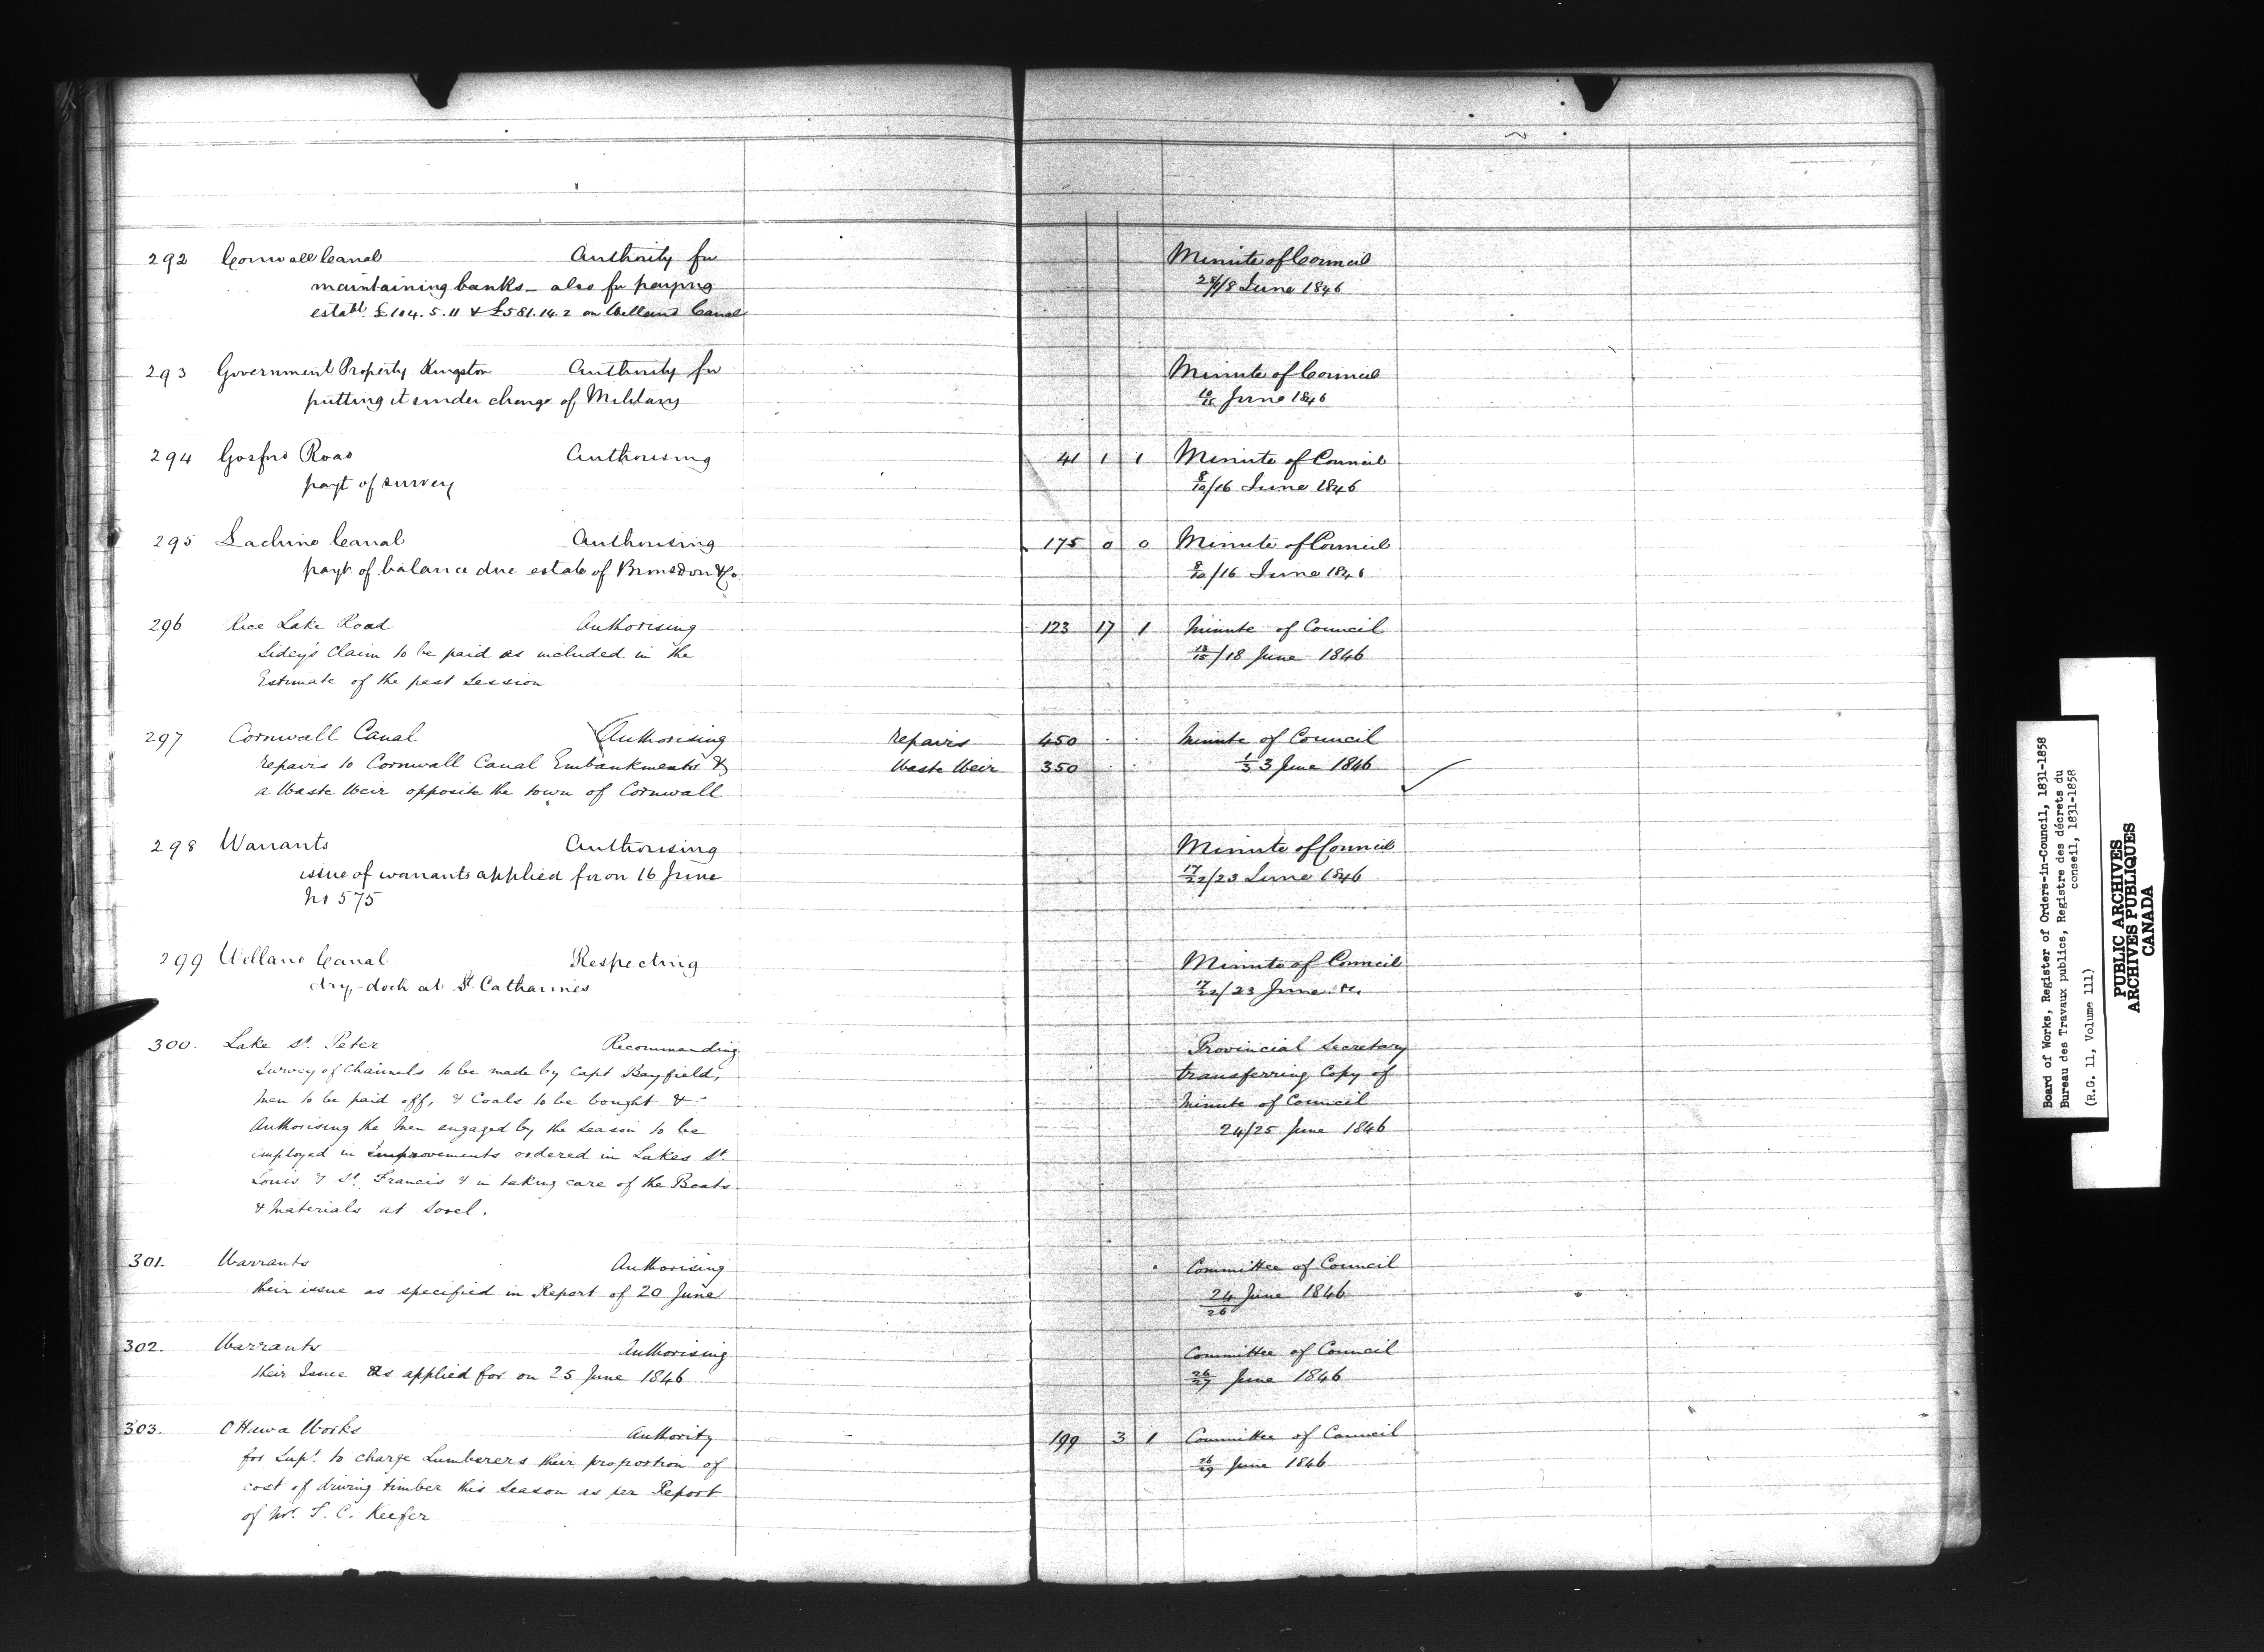 292 Cornwall Canal Authority for Minute of Council
maintaining banks - also for paying /8 June 1846
establt £104.5.11 & £581.14.2 on Welland Canal
293 Government Property Kingston Authority for Minute of Council
putting it under charge of Military June 1846
294 Gosford Road Authorising 41 1 1 Minute of Council
payt of survey 8/10/16 June 1846
295 Lachine Canal Authorising 175 0 0 Minute of Council
payt of balance due estate of Bronsdon & Co 8/10/16 June 1846
296 Rice Lake Road Authorising 123 17 1 Minute of Council
Sidey's Claim to be paid as included in the 13/15/18 June 1846
Estimate of the past Session
297 Cornwall Canal Authorising Repairs 450 Minute of Council
repairs to Cornwall Canal Embankments & Waste Weir 350 1/3 3 June 1846
a Waste Weir opposite the town of Cornwall
298 Warrants Authorising Minute of Council
issue of warrants applied for on 16 June 17/22/23 June 1846
No 575
299 Welland Canal Respecting Minute of Council
dry-dock at St. Catharines 17/22/23 June
300. Lake St. Peter Recommending Provincial Secretary
survey of Channels to be made by Capt Bayfield, transferring Copy of
men to be paid off, & Coals to be bought & Minute of Council
Authorising the men engaged by the season to be 24/25 June 1846
employed in improvements ordered in Lakes St.
Louis & St. Francis & in taking care of the Boats
& Materials at Sorel.
301. Warrants Authorising Committee of Council
their issue as specified in Report of 20 June 24/26 June 1846
302. Warrants Authorising Committee of Council
their Issue as applied for on 25 June 1846 26/27 June 1846
303. Ottawa Works Authority 199 3 1 Committee of Council
for Supt. to charge Lumberers their proportion of 26/29 June 1846
cost of driving timber this season as per Report
of Mr. T. C. Keefer
Board of Works, Register of Orders-in-Council, 1831-1858
Bureau des Travaux publics, Registre des décrets du
conseil, 1831-1858
(R.G. 11, Volume 111)
PUBLIC ARCHIVES
ARCHIVES PUBLIQUES
CANADA